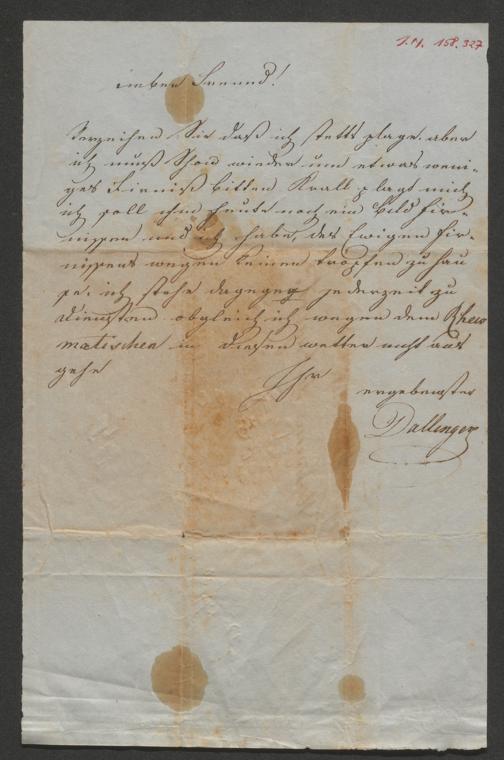 I.N. 158.327
Lieber Freund!
Verzeihen Sie daß ich stetts plage. aber
ich muß Schon wieder um etwas weni-
ges Firniß bitten Krall plagt mich
ich soll ihm heute noch ein Bild fir-
nissen und ich habe, des Ewigen Fir-
nissens wegen keinen tropfen zu hau
se. ich stehe dagegen jederzeit zu
Diensten obgleich ich wegen dem Rheu
matischen in diesen wetter nicht aus
gehe
Ihr
ergebenster
Dallinger